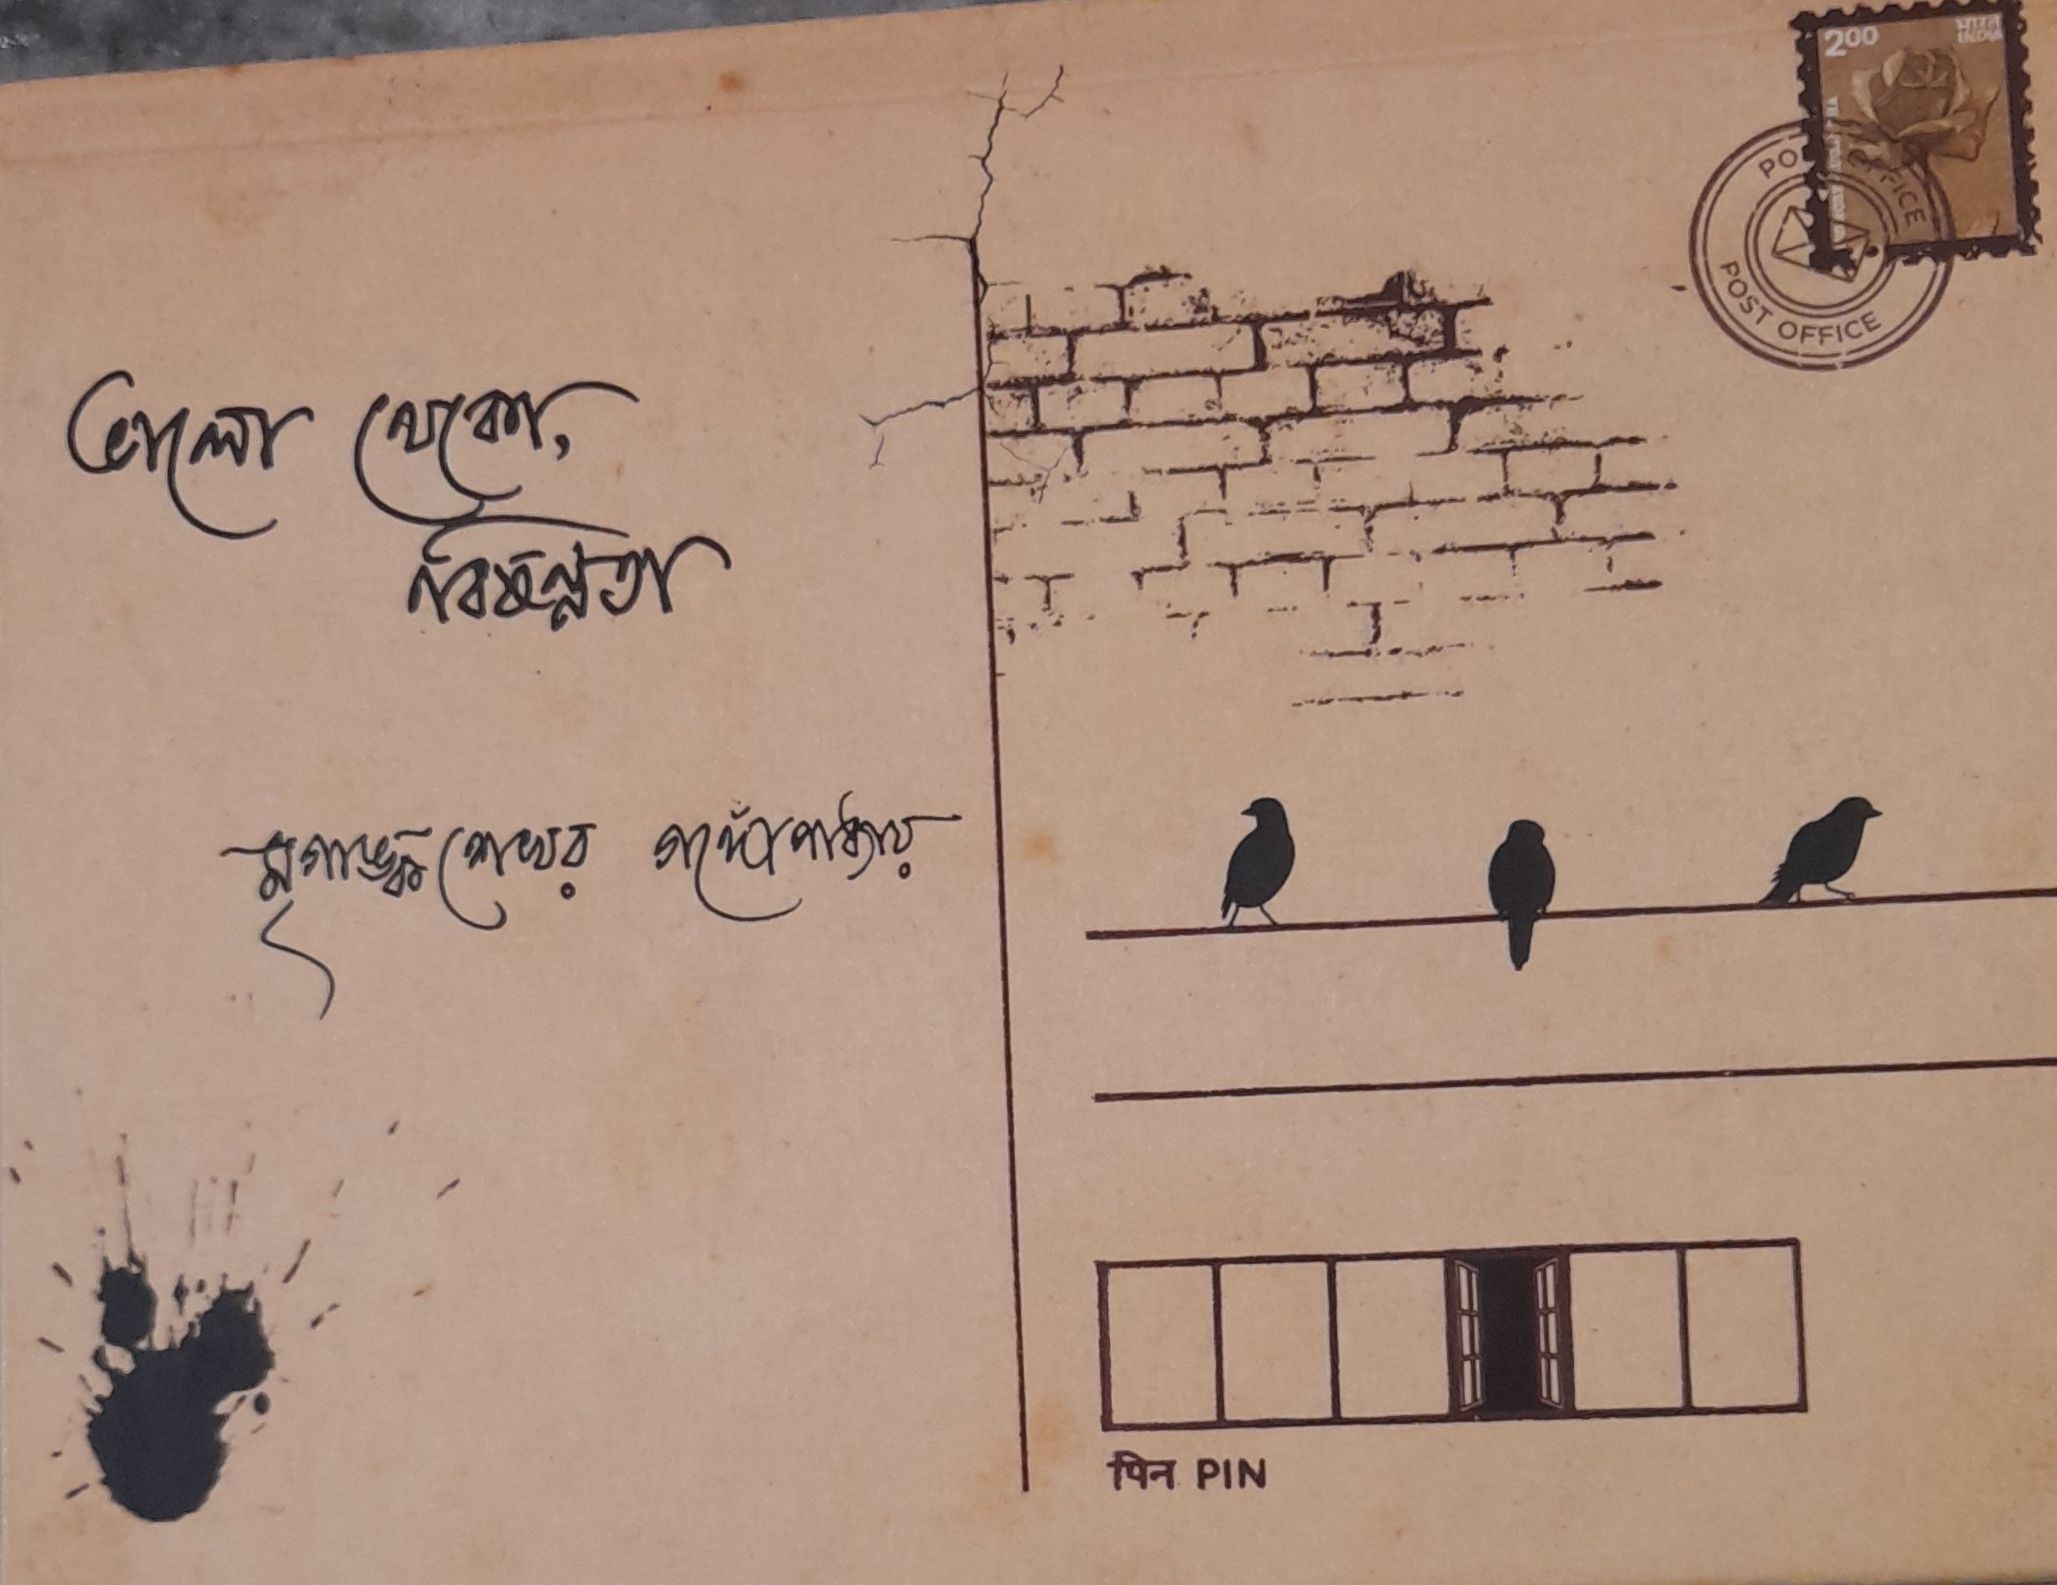 ভালো থেকো,
বিচ্ছিন্নতা
মৃগাঙ্কশেখর গঙ্গোপাধ্যায়
2.00
भारत
INDIA
POST OFFICE
POST OFFICE
पिन PIN